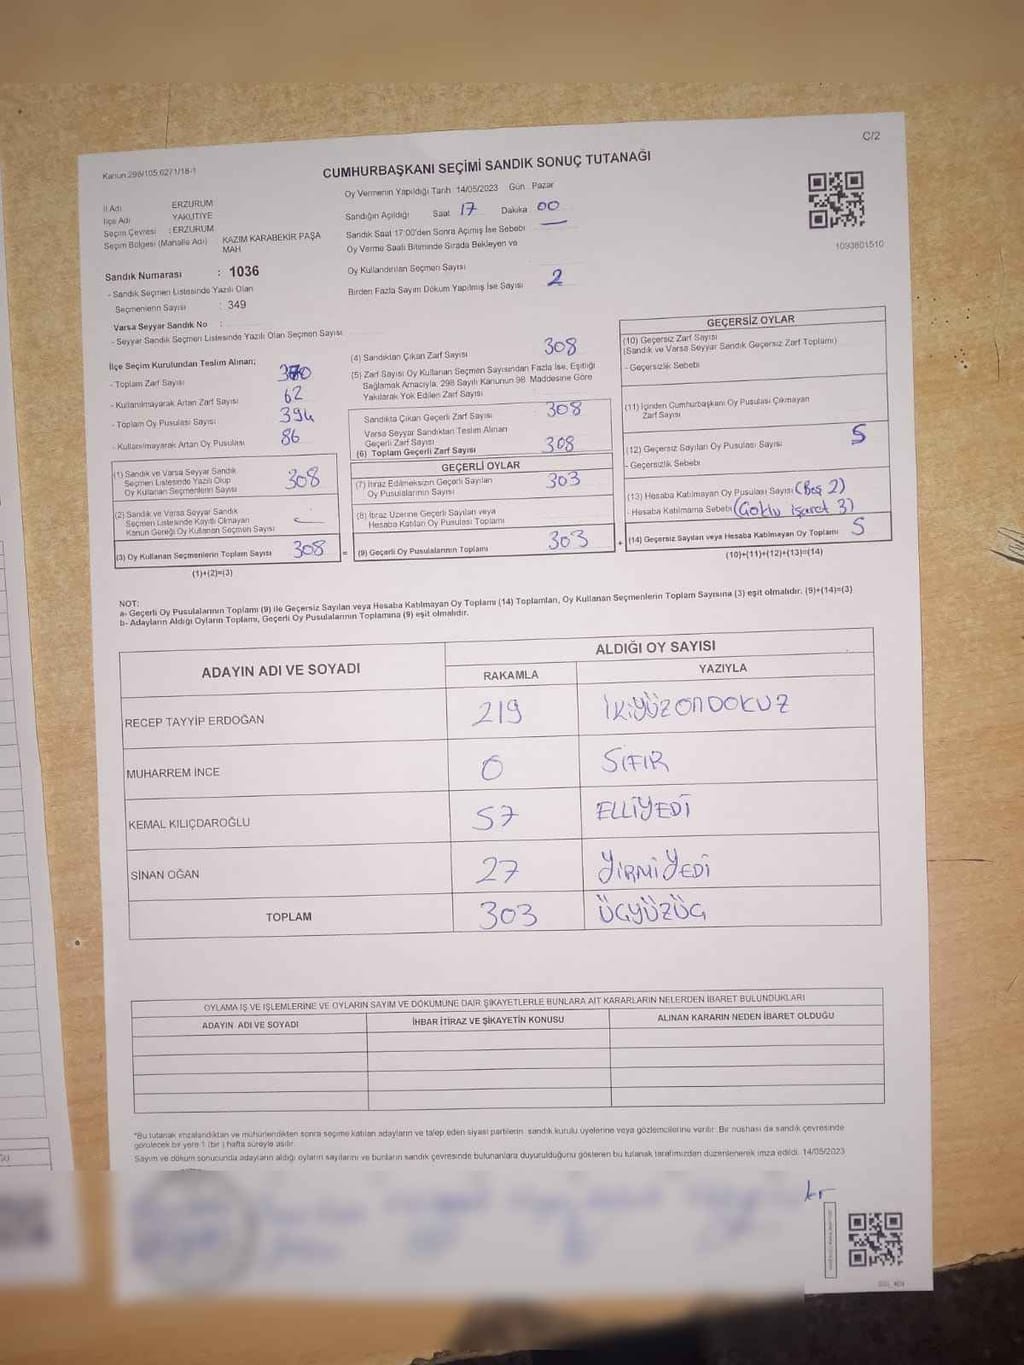 C/2
Kanun:298/105;0271/18-1
CUMHURBAŞKANI SEÇİMİ SANDIK SONUÇ TUTANAĞI
İl Adı ERZURUM
İlçe Adı YAKUTİYE
Seçim Çevresi : ERZURUM
Seçim Bölgesi (Mahalle Adı) KAZIM KARABEKİR PAŞA MAH
Sandık Numarası : 1036
- Sandık Seçmen Listesinde Yazılı Olan
Seçmenlerin Sayısı : 349
Varsa Seyyar Sandık No :
- Seyyar Sandık Seçmen Listesinde Yazılı Olan Seçmen Sayısı
Oy Vermenin Yapıldığı Tarih 14/05/2023 Gün Pazar
Sandığın Açıldığı Saat 17 Dakika 00
Sandık Saat 17:00'den Sonra Açılmış İse Sebebi
Oy Verme Saati Bitiminde Sırada Bekleyen ve
Oy Kullandırılan Seçmen Sayısı
Birden Fazla Sayım Döküm Yapılmış İse Sayısı 2
1093801510
İlçe Seçim Kurulundan Teslim Alınan;
- Toplam Zarf Sayısı 370
- Kullanılmayarak Artan Zarf Sayısı 62
- Toplam Oy Pusulası Sayısı 394
- Kullanılmayarak Artan Oy Pusulası 86
(1) Sandık ve Varsa Seyyar Sandık
Seçmen Listesinde Yazılı Olup
Oy Kullanan Seçmenlerin Sayısı 308
(2) Sandık ve Varsa Seyyar Sandık
Seçmen Listesinde Kayıtlı Olmayan
Kanun Gereği Oy Kullanan Seçmen Sayısı
(3) Oy Kullanan Seçmenlerin Toplam Sayısı 308 =
(1)+(2)=(3)
(4) Sandıktan Çıkan Zarf Sayısı 308
(5) Zarf Sayısı Oy Kullanan Seçmen Sayısından Fazla İse, Eşitliği
Sağlamak Amacıyla, 298 Sayılı Kanunun 98. Maddesine Göre
Yakılarak Yok Edilen Zarf Sayısı
Sandıkta Çıkan Geçerli Zarf Sayısı 308
Varsa Seyyar Sandıktan Teslim Alınan
Geçerli Zarf Sayısı
(6) Toplam Geçerli Zarf Sayısı 308
GEÇERLİ OYLAR
(7) İtiraz Edilmeksizin Geçerli Sayılan
Oy Pusulalarının Sayısı 303
(8) İtiraz Üzerine Geçerli Sayılan veya
Hesaba Katılan Oy Pusulası Toplamı
(9) Geçerli Oy Pusulalarının Toplamı 303 +
GEÇERSİZ OYLAR
(10) Geçersiz Zarf Sayısı
(Sandık ve Varsa Seyyar Sandık Geçersiz Zarf Toplamı)
- Geçersizlik Sebebi
(11) İçinden Cumhurbaşkanı Oy Pusulası Çıkmayan
Zarf Sayısı
(12) Geçersiz Sayılan Oy Pusulası Sayısı 5
- Geçersizlik Sebebi
(13) Hesaba Katılmayan Oy Pusulası Sayısı (Boş 2)
- Hesaba Katılmama Sebebi (Çoklu işaret 3)
(14) Geçersiz Sayılan veya Hesaba Katılmayan Oy Toplamı 5
(10)+(11)+(12)+(13)=(14)
NOT:
a- Geçerli Oy Pusulalarının Toplamı (9) ile Geçersiz Sayılan veya Hesaba Katılmayan Oy Toplamı (14) Toplamları, Oy Kullanan Seçmenlerin Toplam Sayısına (3) eşit olmalıdır. (9)+(14)=(3)
b- Adayların Aldığı Oyların Toplamı, Geçerli Oy Pusulalarının Toplamına (9) eşit olmalıdır.
ADAYIN ADI VE SOYADI ALDIĞI OY SAYISI
RAKAMLA YAZIYLA
RECEP TAYYİP ERDOĞAN 219 İKİYÜZONDOKUZ
MUHARREM İNCE 0 SIFIR
KEMAL KILIÇDAROĞLU 57 ELLİYEDİ
SİNAN OĞAN 27 YİRMİYEDİ
TOPLAM 303 ÜÇYÜZÜÇ
OYLAMA İŞ VE İŞLEMLERİNE VE OYLARIN SAYIM VE DÖKÜMÜNE DAİR ŞİKAYETLERLE BUNLARA AİT KARARLARIN NELERDEN İBARET BULUNDUKLARI
ADAYIN ADI VE SOYADI İHBAR İTİRAZ VE ŞİKAYETİN KONUSU ALINAN KARARIN NEDEN İBARET OLDUĞU
*Bu tutanak imzalandıktan ve mühürlendikten sonra seçime katılan adayların ve talep eden siyasi partilerin sandık kurulu üyelerine veya gözlemcilerine verilir. Bir nüshası da sandık çevresinde
görülecek bir yere 1 (bir) hafta süreyle asılır.
Sayım ve döküm sonucunda adayların aldığı oyların sayılarını ve bunların sandık çevresinde bulunanlara duyurulduğunu gösteren bu tutanak tarafımızdan düzenlenerek imza edildi. 14/05/2023